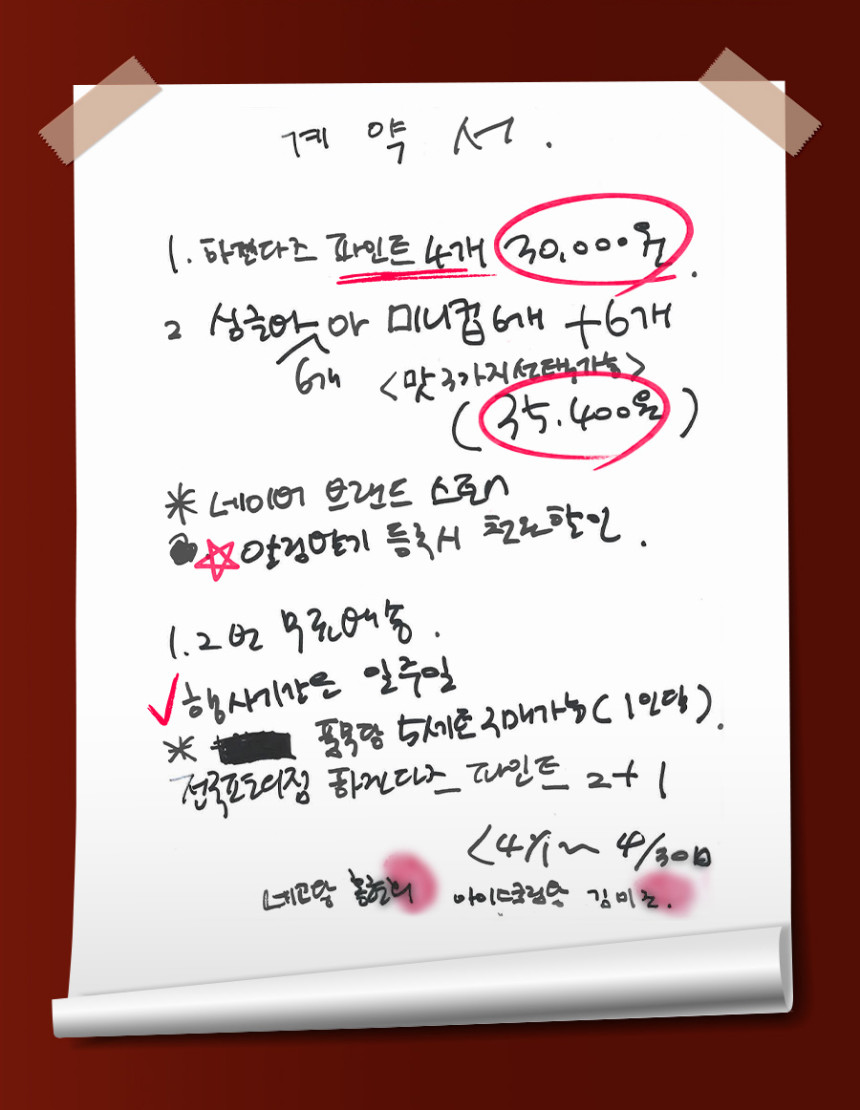 계약서.
1. 하겐다즈 파인트 4개 30,000원.
2 싱글바 6개 미니컵 6개 +6개
<맛 3가지 선택가능>
(35.400원)
* 네이버 브랜드 스토어
알림받기 등록시 천원할인.
1.2번 무료배송.
행사기간은 일주일
* 품목당 5세트 구매가능 (1인당).
전국편의점 하겐다즈 파인트 2+1
<4/1~4/30日
네고왕 아이스크림왕 김미조.